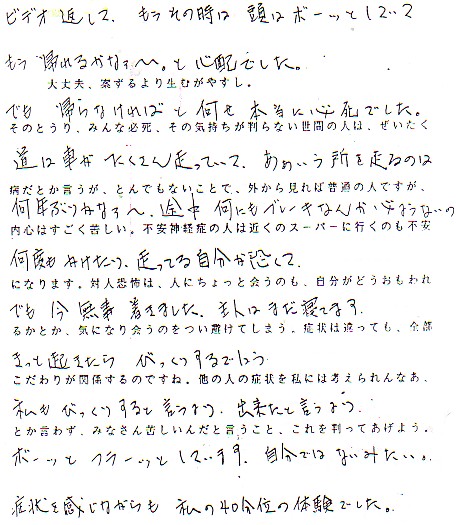 ビデオ返して、もうその時は頭はボーッとしていて
もう帰れるかなぁ〜。と心配でした。
大丈夫、案ずるより生むがやすし。
でも帰らなければと何せ本当に必死でした。
そのとうり、みんな必死、その気持ちが判らない世間の人は、ぜいたく
道は車がたくさん走っていて、あぁいう所を走るのは
病だとか言うが、とんでもないことで、外から見れば普通の人ですが、
何年ぶりかねぇ〜、途中何にもブレーキなんか必要ないの
内心はすごく苦しい。不安神経症の人は近くのスーパーに行くのも不安
何度もかけたり、走ってる自分が恐くて
になります。対人恐怖は、人にちょっと会うのも、自分がどうおもわれ
でも今無事着きました。主人はまだ寝てます。
るかとか、気になり会うのをつい避けてしまう。症状は違っても、全部
きっと起きたらびっくりするでしょう
こだわりが関係するのですね。他の人の症状を私には考えられんなあ、
私もびっくりすると言うより、出来たと言うより
とか言わず、みなさん苦しいんだと言うこと、これを判ってあげよう。
ボーッとフラーッとしています、自分ではないみたい。
症状を感じながらも私の40分位の体験でした。